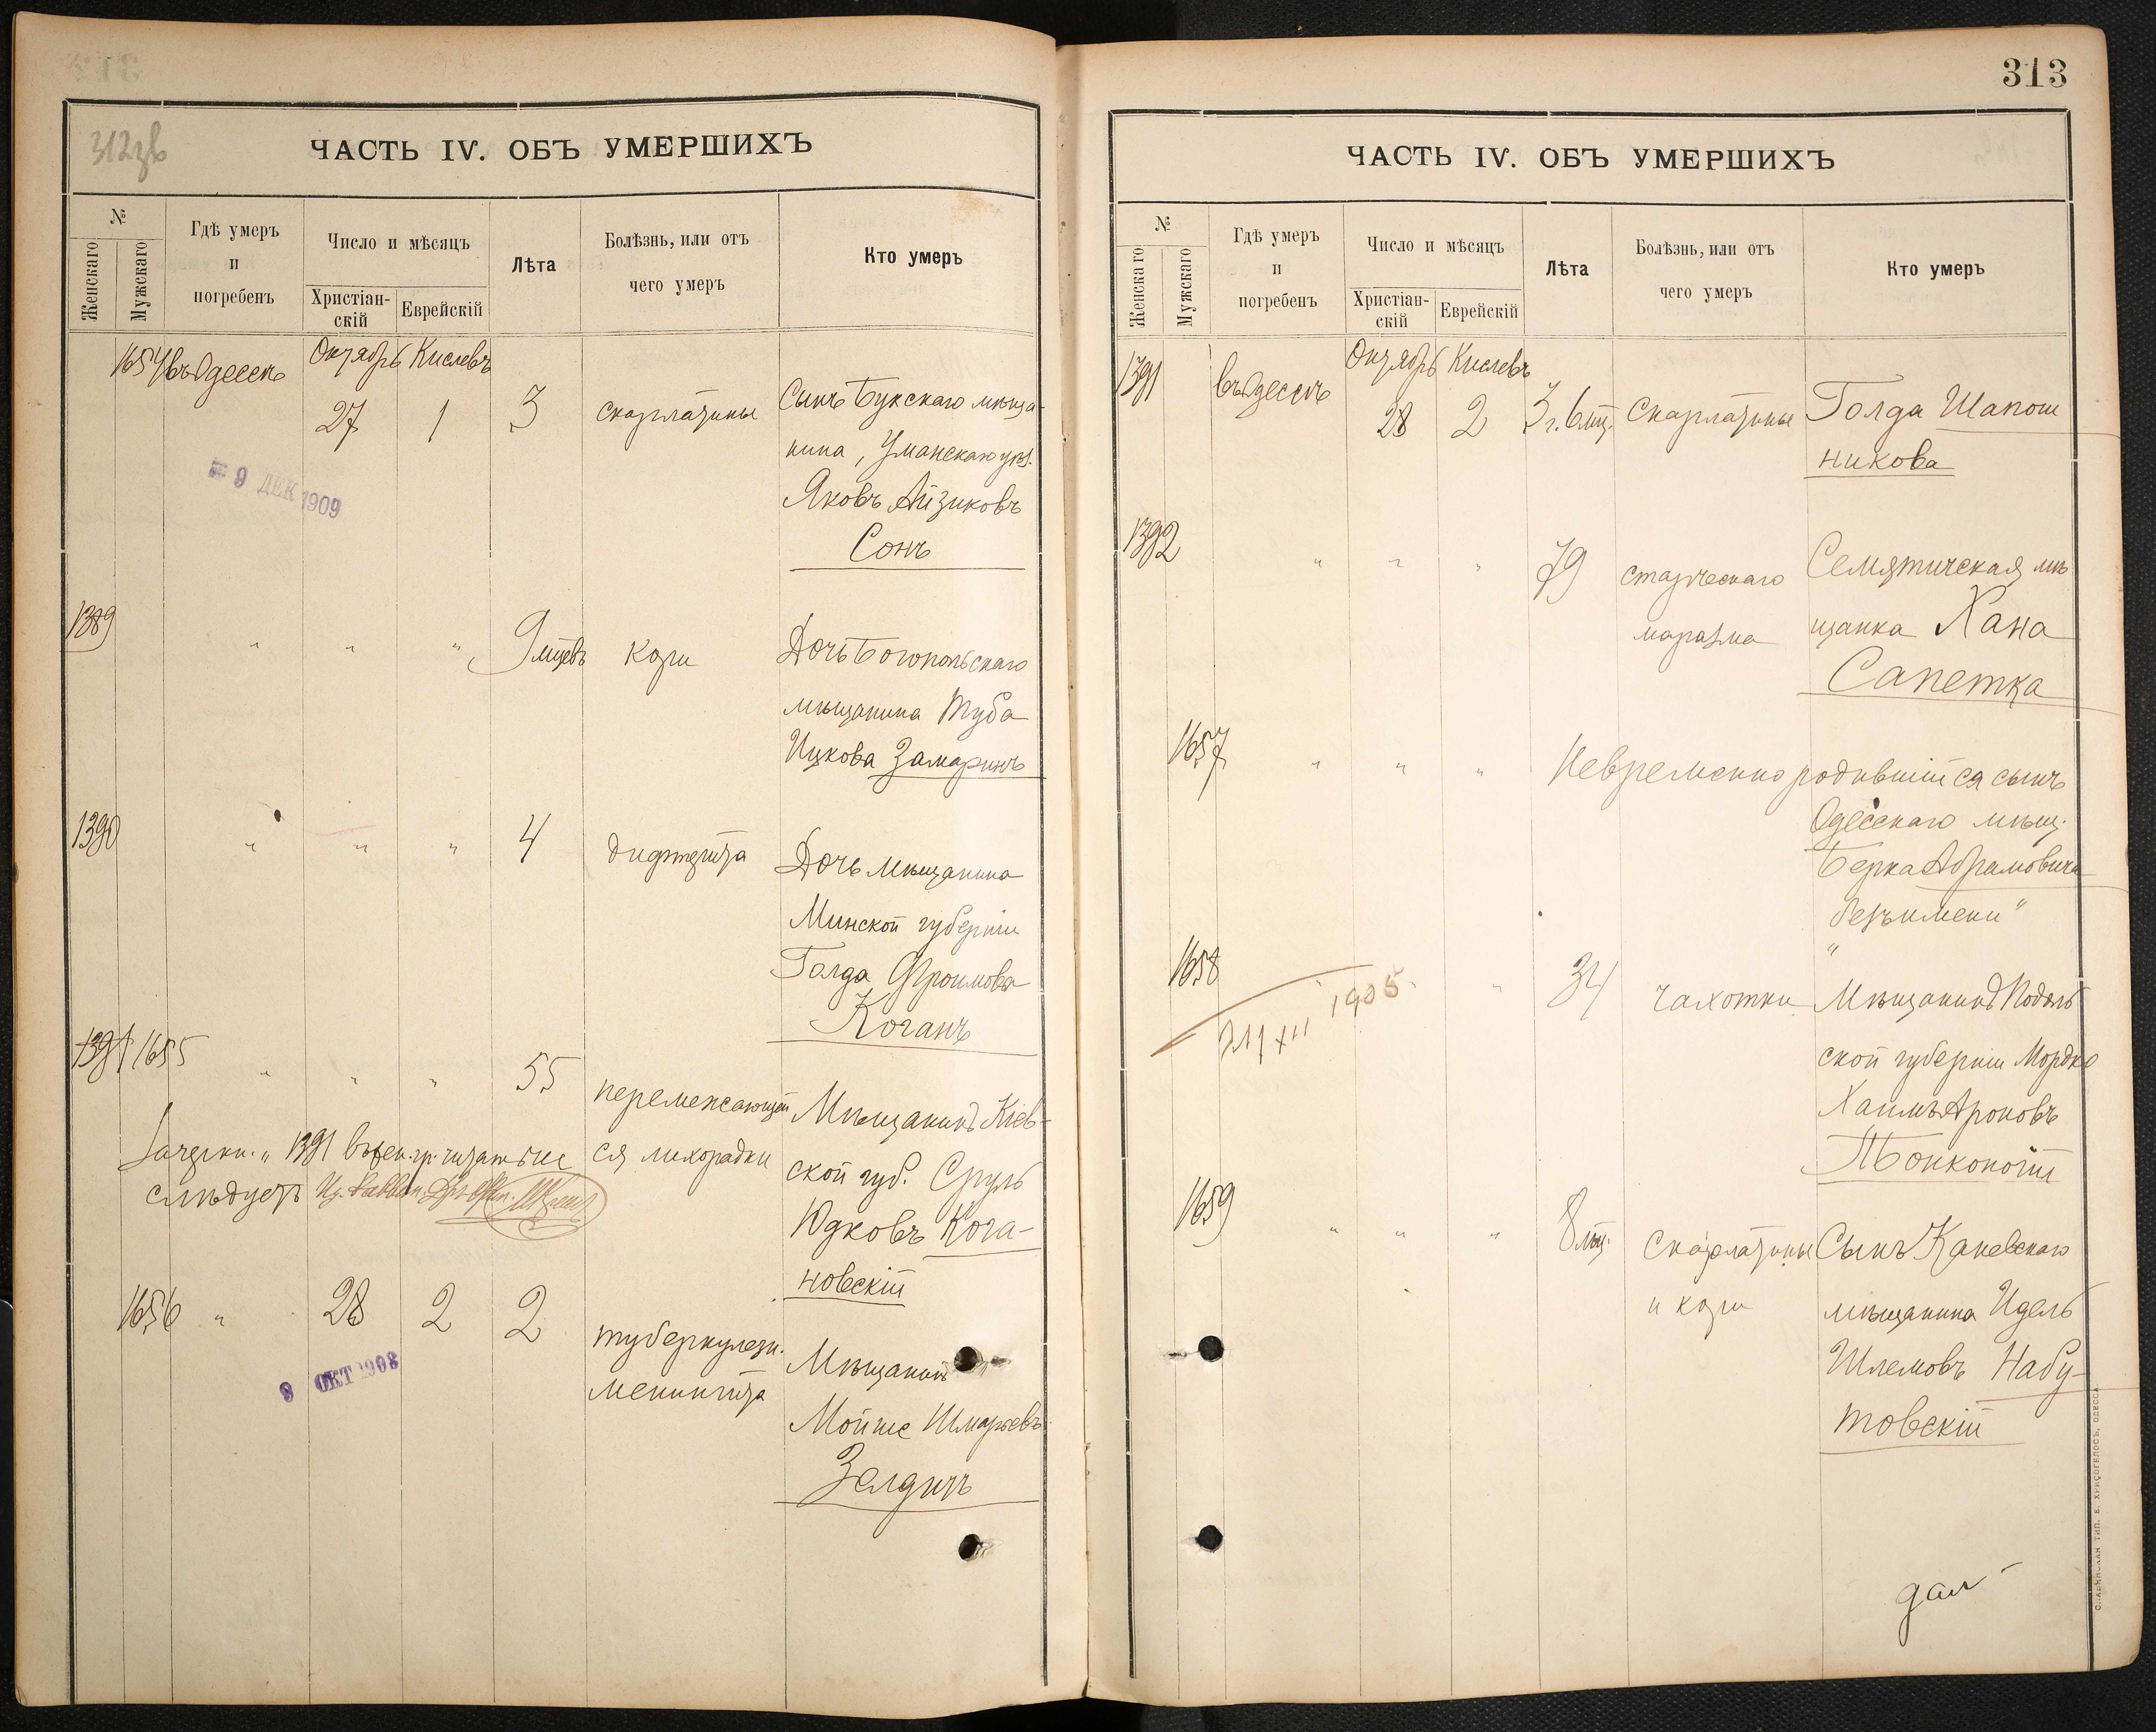 312 зв
ЧАСТЬ IV. ОБЪ УМЕРШИХЪ
№
Женскаго
Мужскаго
Гдѣ умеръ
и
погребенъ
Число и мѣсяцъ
Христіан-
скій
Еврейскій
Лѣта
Болѣзнь, или отъ
чего умеръ
Кто умеръ
1654 въ Одессѣ Октябрь Кислевъ
27 1 3 скарлатины Сынъ Букскаго мѣща-
нина, Уманскаго уѣз.
Яковъ Айзиковъ
Сонъ
9 ДЕК 1909
1389 " " " 9 мцевъ кори Дочь Богопольскаго
мѣщанина Туба
Ицкова Замаринъ
1390 " " " 4 дифтерита Дочь мѣщанина
Минской губерніи
Голда Фроимова
Коганъ
1391 1655 " " " 55 перемежающей
ся лихорадки
Мѣщанинъ Кіев-
ской губ. Сруль
Юдковъ Кога-
новскій
Зачеркн. „1391 въ жен. гр. читать не
слѣдуетъ
1656 " 28 2 2 туберкулезн.
менингита
Мѣщанинъ
Мойше Шмарьевъ
Зелдинъ
9 ОКТ 1908
313
ЧАСТЬ IV. ОБЪ УМЕРШИХЪ
№
Женскаго
Мужскаго
Гдѣ умеръ
и
погребенъ
Число и мѣсяцъ
Христіан-
скій
Еврейскій
Лѣта
Болѣзнь, или отъ
чего умеръ
Кто умеръ
1391 въ Одессѣ Октябрь Кислевъ
28 2 3 г. 6 мц. Скарлатины Голда Шапош
никова
1392 " " " 79 старческаго
маразма
Семятичская мѣ
щанка Хана
Сапетка
1657 " " " Невременно родившійся сынъ
Одесскаго мѣщ.
Берка Абрамовича
"безъ имени"
1658 " " 34 чахотки Мѣщанинъ Подоль
ской губерніи Мордко
Хаимъ Ароновъ
21/XII 1905
1659 " " " 8 мц. Скарлатины
и кори
Сынъ Каневскаго
мѣщанина Идель
Шлемовъ Набу-
товскій
СЛАВЯНСКАЯ ТИП. Е. ХРИСОГЕЛОСЪ, ОДЕССА